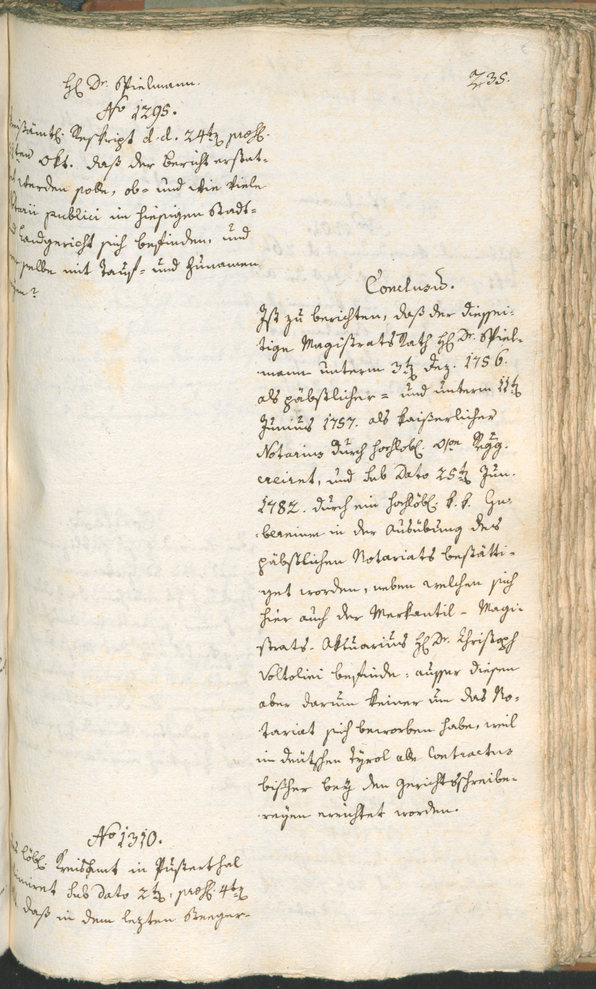 235.
H. Dr. Spielmann.
No 1295.
Reskript d. d. 24t præs.
ten Okt. daß der Bericht erstat-
werden solle, ob- und wie viele
publici im hiesigen Stadt-
Landgericht sich befinden, und
selbe mit Tauf- und Zunamen
Conclusum.
Ist zu berichten, daß der diessei-
tige Magistrats Rath H. Dr. Spiel-
mann unterm 3t Dez. 1756.
als päbstlicher- und unterm 11t
Junius 1757. als kaißerlicher
Notarius durch hochlöbl. o.ö. Rgg.
creirt, und sub Dato 25t Jun.
1782. durch ein hochlöbl. k. k. Gu-
bernium in der Ausübung des
päbstlichen Notariats bestätti-
get worden, neben welchen sich
hier auch der Merkantil- Magi-
strats- Aktuarius H. Dr. Christoph
Voltolini befinde: ausser diesen
aber darum keiner um das No-
tariat sich beworben habe, weil
im deutschen Tyrol alle Contractus
bisher bey den Gerichtsschreibe-
reyen errichtet worden.
No 1310.
löbl. Kreisamt in Pusterthal
sub Dato 2t, præs. 4t
daß in dem lezten